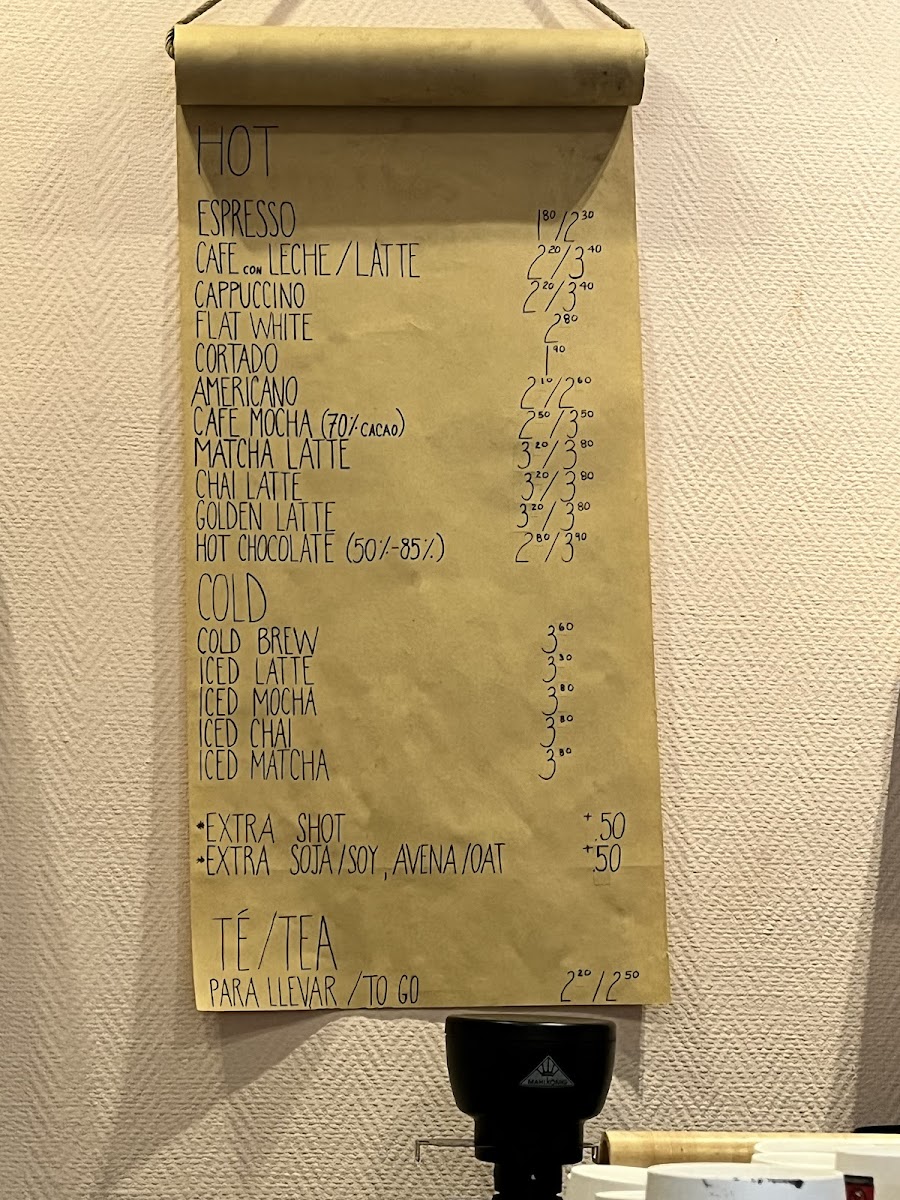 HOT
ESPRESSO 1⁸⁰/2³⁰
CAFE CON LECHE/LATTE 2²⁰/3⁴⁰
CAPPUCCINO 2²⁰/3⁴⁰
FLAT WHITE 2⁸⁰
CORTADO 1⁹⁰
AMERICANO 2¹⁰/2⁶⁰
CAFE MOCHA (70% CACAO) 2⁵⁰/3⁵⁰
MATCHA LATTE 3²⁰/3⁸⁰
CHAI LATTE 3²⁰/3⁸⁰
GOLDEN LATTE 3²⁰/3⁸⁰
HOT CHOCOLATE (50%-85%) 2⁸⁰/3⁹⁰
COLD
COLD BREW 3⁶⁰
ICED LATTE 3³⁰
ICED MOCHA 3⁸⁰
ICED CHAI 3⁸⁰
ICED MATCHA 3⁸⁰
*EXTRA SHOT +.50
*EXTRA SOJA/SOY, AVENA/OAT +.50
TÉ/TEA
PARA LLEVAR /TO GO 2²⁰/2⁵⁰
MAHLKÖNIG